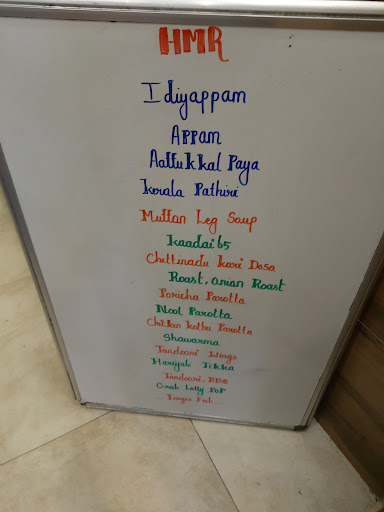 HMR
Idiyappam
Appam
Aattukkal Paya
Kerala Pathiri
Mutton Leg Soup
Kaadai 65
Chettinadu Kari Dosa
Roast, Onian Roast
Poricha Parotta
Nool Parotta
Chicken Kothu Parotta
Shawarma
Tandoori Wings
Hariyali Tikka
Tandoori, BBQ
Crab Lolly PoP
Finger Fish